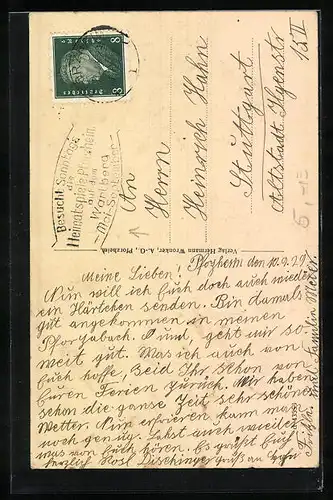 8 8
Besucht Sonntags
die
Heimatspiele Pforzheim
auf dem
Wartberg
Mai-September
An
Herrn
Heinrich Hahn
Stuttgart
Altstadt Ilgenstr
15 II
Verlag Hermann Wronker, A.-G., Pforzheim.
Pforzheim den 10.9.29
Meine Lieben!
Nun will ich Euch doch auch wieder
ein Kärtchen senden. Bin damals
gut angekommen in meinen
Pforzabach. und, geht mir so-
weit gut. Was ich auch von
Euch hoffe, seid Ihr schon von
Euren Ferien zurück. Wir haben
schon die ganze Zeit sehr schönes
Wetter. Nun erfrieren kann man
noch genug. Lasst auch wieder
was von Euch hören. Es grüßt Euch
herzlich Rosl Dischinger Gruß an
Familie